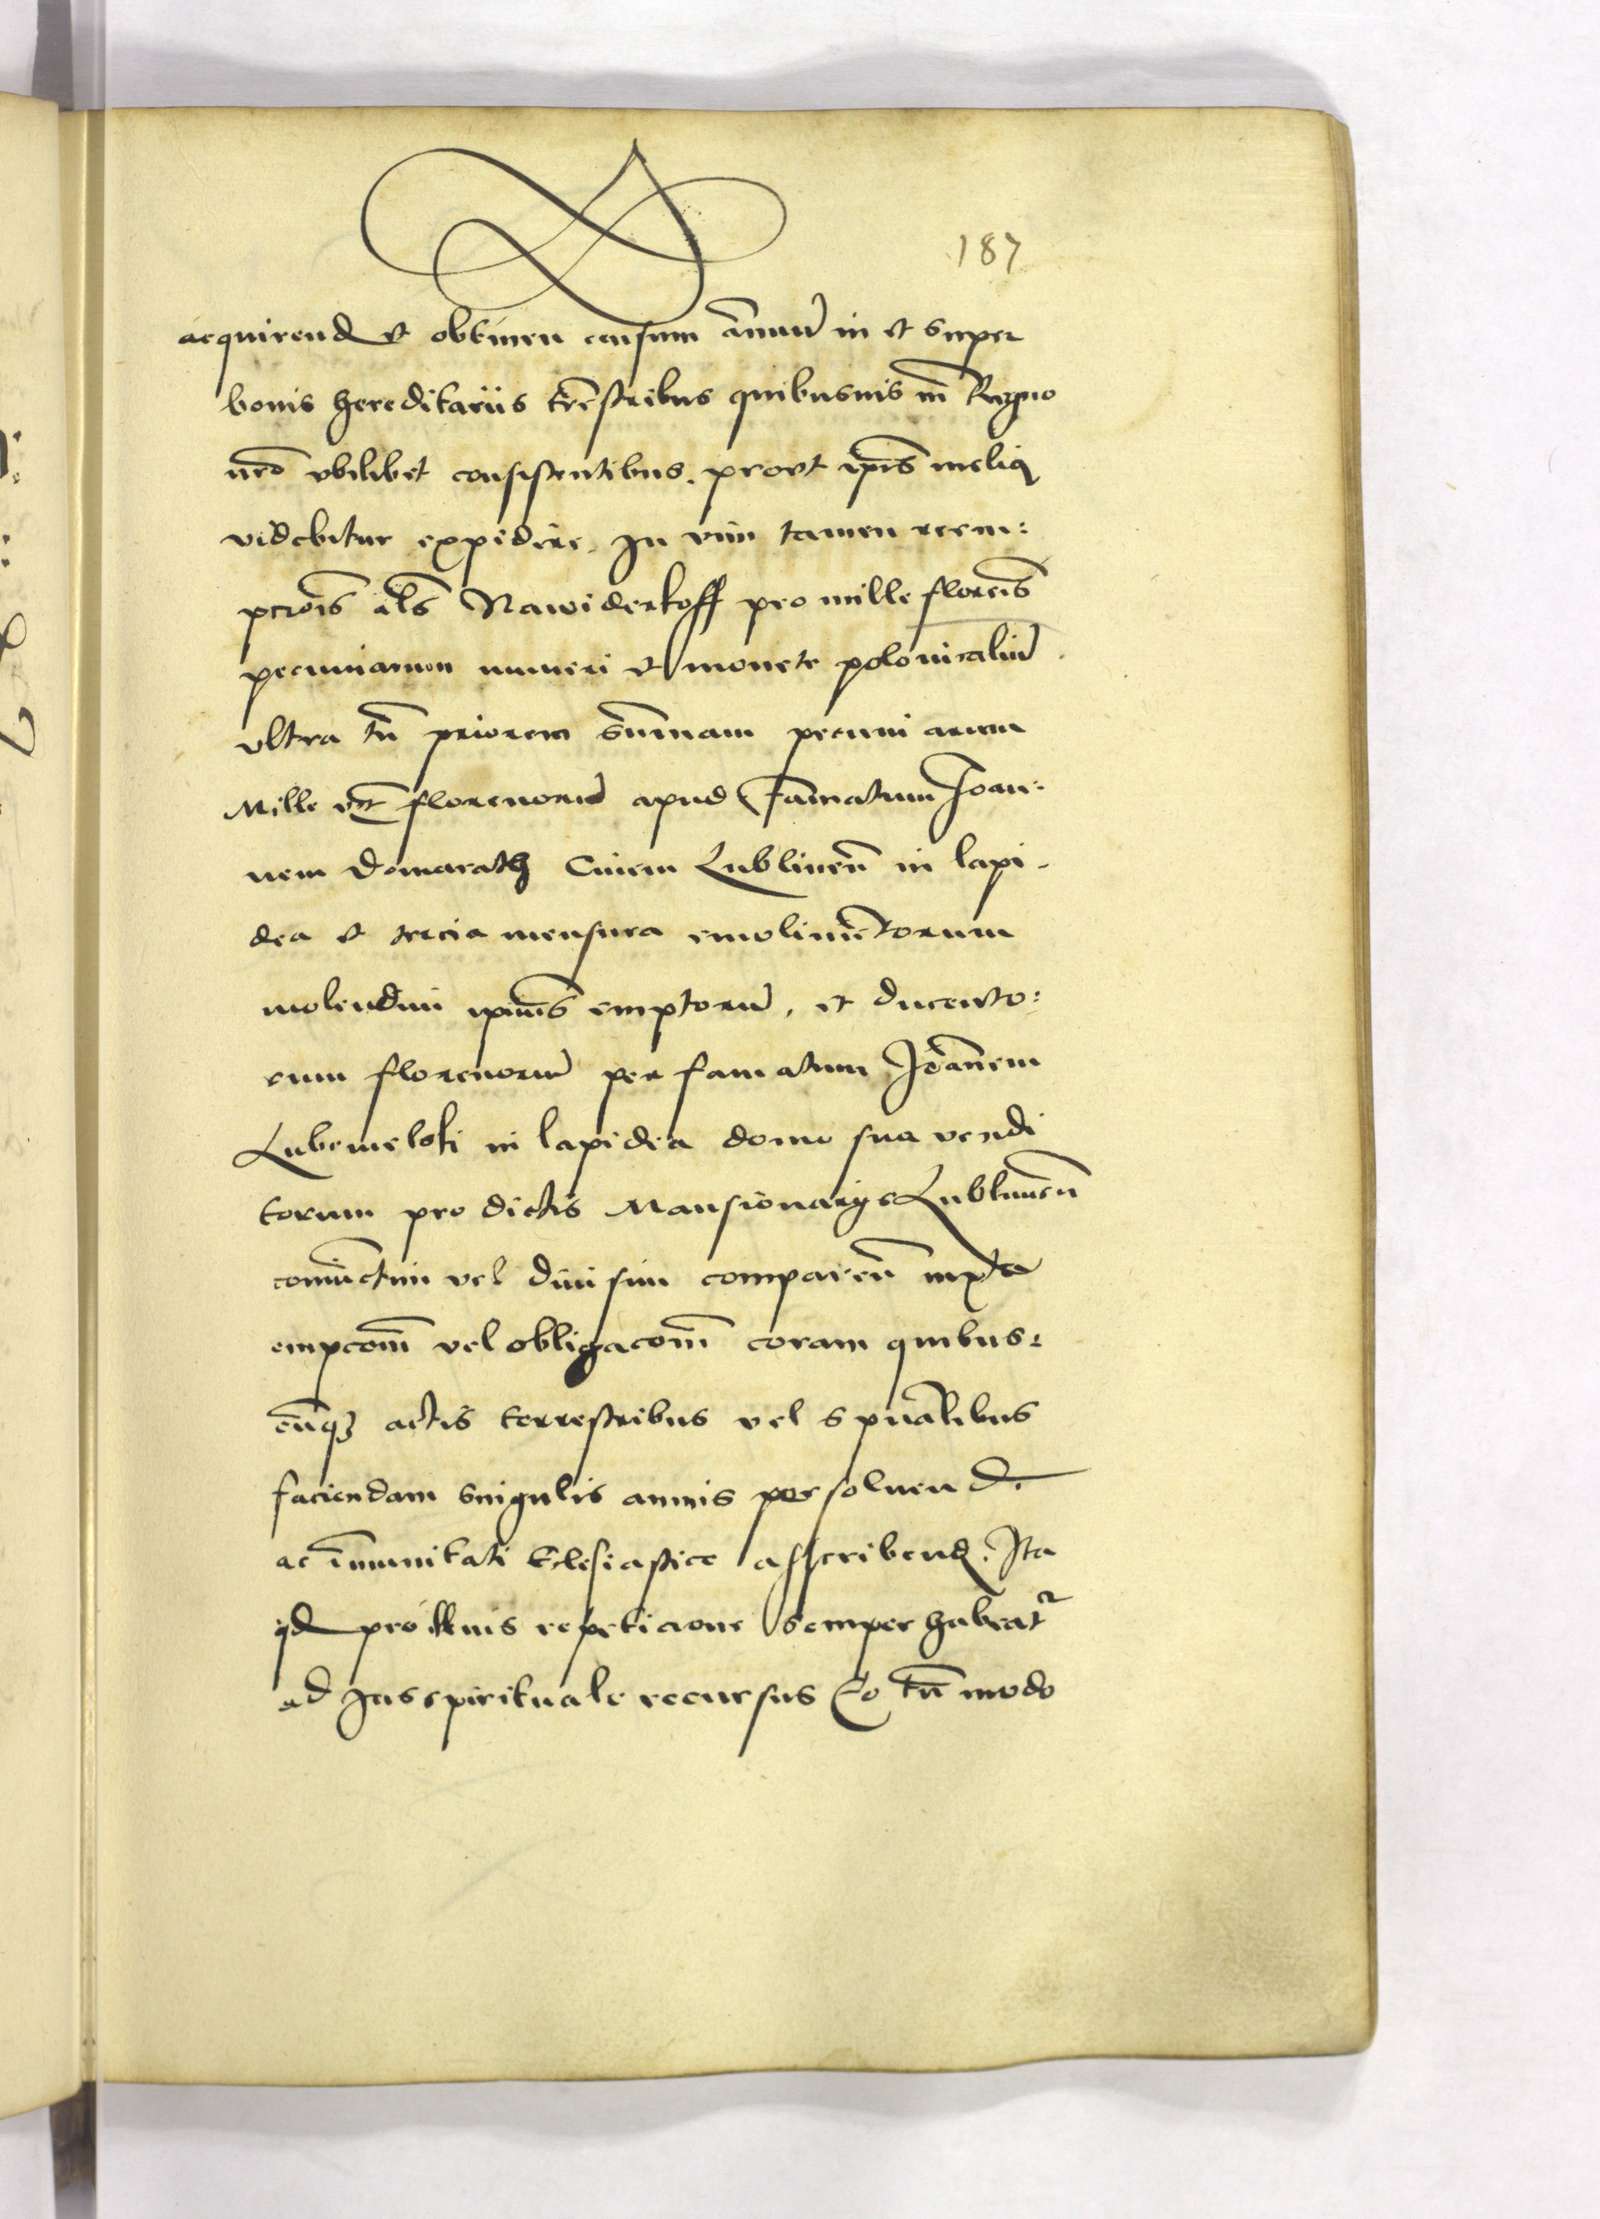 187
acquirend et obtinen censum annuū in et super
bonis hereditariis trēstribus quibusuis in Regno
nrō vbilibet consistentibus. prout ipīs meliq
videbitur expedire. In vim tamen reem:
pcrois als Nawiderkoff pro mille florēis
pecuniarum numeri et monete polonicaliū.
vltra tn̄ priorem sūmmam pecuniarum
Mille vt̄ florenorū apud famatum Joan:
nem Domarath Ciuem Lublinen̄ in lapi-
dea et tercia mensura emolimētorum
molendini ipius emptorū, et ducento:
rum florenorū per famatum Joānem
in lapidea domo sua vendi
torum pro dictis Mansionarys Lublinen̄
coniūctim vel diuisim comparen̄ iuxta
empcom̄ vel obligacom̄ coram quibus:
cūqꝫ actis terrestribus vel spūalibus
faciendam singulis annis persoluend.
ac īmmunitati Eclesiastice asscribend. Ita
qd pro illius repeticione semper habeatr
ad Jus spirituale recursus Eo tn̄ modo